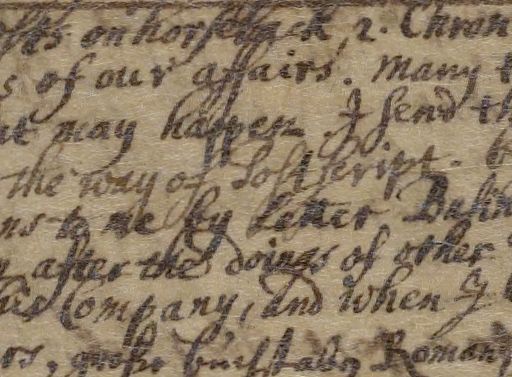 on horseback, 2. Chron
s of our affairs. many
may happen I send th
the way of Postscript.
ns to me by letter Busin
after the doings of other
Company, and when I
Roman